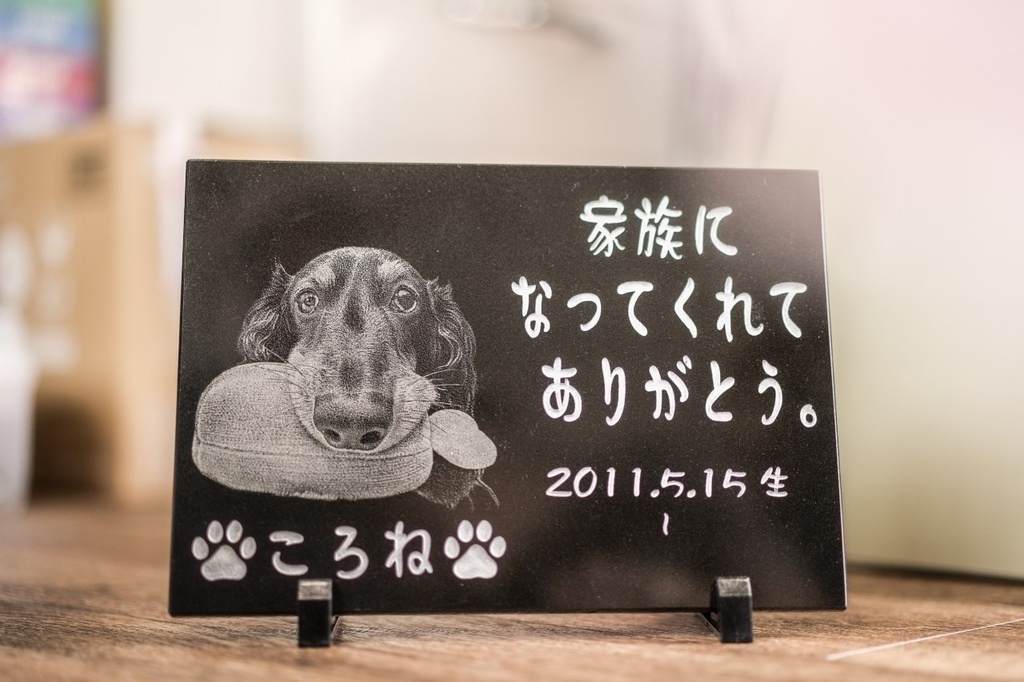 家族に
なってくれて
ありがとう。
2011.5.15生
~
ころね